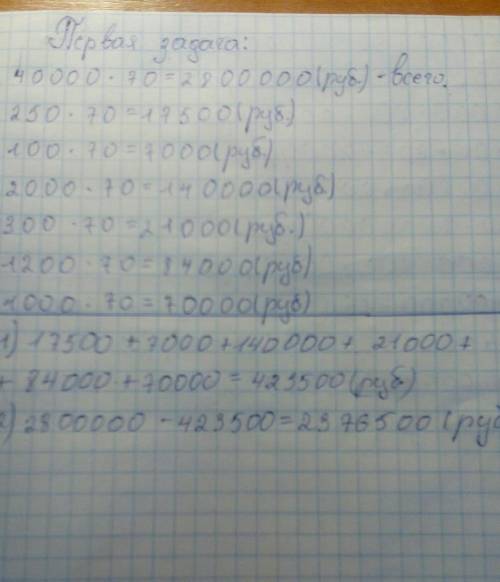 Первая задача:
40000 · 70 = 2800000 (руб.) - всего.
250 · 70 = 17500 (руб.)
100 · 70 = 7000 (руб.)
2000 · 70 = 140000 (руб)
300 · 70 = 21000 (руб.)
1200 · 70 = 84000 (руб)
1000 · 70 = 70000 (руб)
1) 17500 + 7000 + 140000 + 21000 +
+ 84000 + 70000 = 423500 (руб.)
2) 2800000 - 423500 = 2376500 (руб